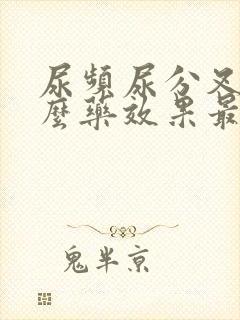 尿頻尿分叉
麼藥效果最
鬼半京